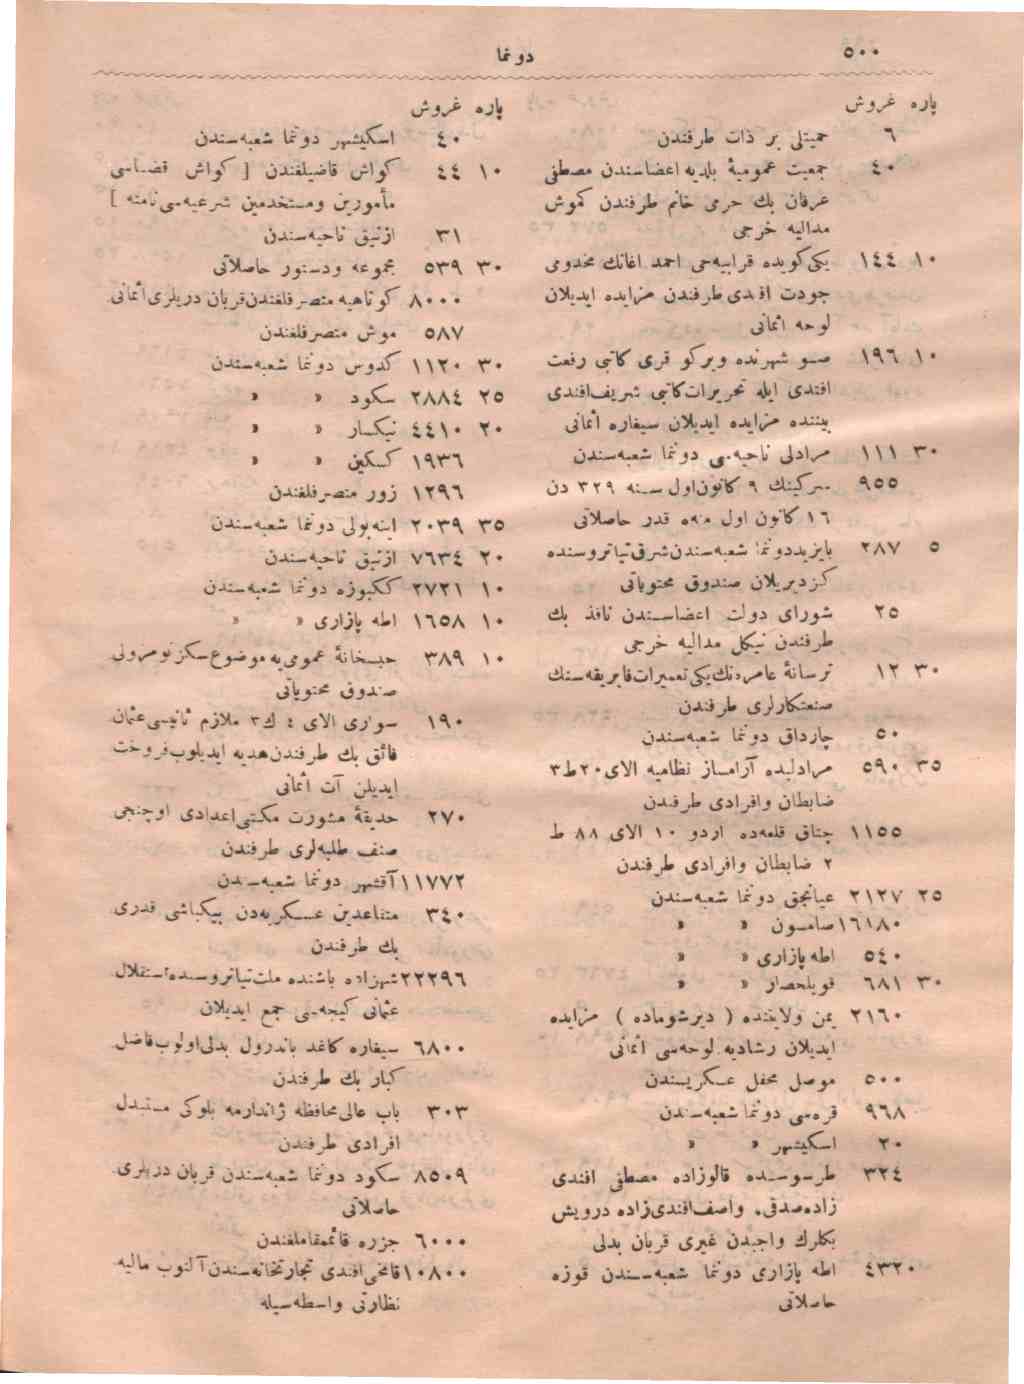 ٥٠٠
دونما
پاره غروش
٦ حميتلى بر ذات طرفندن
٤٠ جمعيت عموميۀ بلديه اعضاسندن مصطفى
عرفان بك حرمى خانم طرفندن كموش
مداليه خرجى
١٠ ١٤٤ يكى كويده قرابيه‌جى احمد اغانك مخدومى
جودت افندى طرفندن مزايده ايديلان
لوحه اثمانى
١٠ ١٩٦ صو شهرنده ويركو قرى كاتبى رفعت
افندى ايله تحريرات كاتبى شريف افندى
بيننده مزايده ايديلان سيغاره اثمانى
٣٠ ١١١ مرادلى ناحيه‌سى دونما شعبه‌سندن
٩٥٥ سركينك ٩ كانون اول سنه ٣٢٩ دن
١٦ كانون اول منه قدر حاصلاتى
٥ ٢٨٧ بايزيد دونما شعبه‌سندن شرق تياتروسنده
كزديريلان صندوق محتوياتى
٢٥ شوراى دولت اعضاسندن نافذ بك
طرفندن نيكل مداليه خرجى
٣٠ ١٢ ترسانۀ عامره‌نك يكى تعميرات فابريقه‌سنك
صنعتكارلرى طرفندن
٥٠ چارداق دونما شعبه‌سندن
٣٥ ٥٩٠ مرادليده آرامساز نظاميه الاى ٢٠ ط ٣
ضابطان وافرادى طرفندن
١١٥٥ چتاق قلعه‌ده اردو ١٠ الاى ٨٨ ط
٢ ضابطان وافرادى طرفندن
٢٥ ٢١٢٧ عيانجق دونما شعبه‌سندن
١٦١٨٠ صامسون » »
٥٤٠ اطه پازارى » »
٣٠ ٦٨١ قويلحصار » »
٢١٦٠ يمن ولايتنده ( ديرشوماده ) مزايده
ايديلان رشاديه لوحه‌سى اثمانى
٥٠٠ موصل محفل عسكريسندن
٩٦٨ قره‌سى دونما شعبه‌سندن
٢٠ اسكيشهر » »
٣٢٤ طرسوسده قالوزاده مصطفى افندى
زاده صدقى، واصف افندى زاده درويش
بكلرك واجبدن غيرى قربان بدلى
٤٣٢٠ اطه پازارى دونما شعبه‌سندن قوزه
حاصلاتى
پاره غروش
٤٠ اسكيشهر دونما شعبه‌سندن
١٠ ٤٤ كواش قاضيلغندن [ كواش قضاسى
مأمورين ومستخدمين شرعيه‌سى نامنه ]
٣١ ازنيق ناحيه‌سندن
٣٠ ٥٣٩ مجموعه ودستور حاصلاتى
٨٠٠٠ كوتاهيه متصرفلغندن قربان دريلرى اثمانى
٥٨٧ موش متصرفلغندن
٣٠ ١١٢٠ كدوس دونما شعبه‌سندن
٢٥ ٢٨٨٤ سكود » »
٢٠ ٤٤١٠ نيكسار » »
١٩٣٦ كسكين » »
١٢٩٦ زور متصرفلغندن
٣٥ ٢٠٣٩ اينه‌بولى دونما شعبه‌سندن
٢٠ ٧٦٣٤ ازنيق ناحيه‌سندن
١٠ ٢٧٢١ ككبوزه دونما شعبه‌سندن
١٠ ١٦٥٨ اطه پازارى » »
١٠ ٣٨٩ حبسخانۀ عمومى‌يه موضوع سكز نومرولى
صندوق محتوياتى
١٩٠ سوارى الاى ٤ ك ٣ ملازم ثانيسى عثمان
فائق بك طرفندن هديه ايديلوب فروخت
ايديلن آت اثمانى
٢٧٠ حديقۀ مشورت مكتب اعدادى اوچنجى
صنف طلبه‌لرى طرفندن
١١٧٧٢ آقشهر دونما شعبه‌سندن
٣٤٠ متقاعدين عسكريه‌دن بيكباشى قدرى
بك طرفندن
٢٢٢٩٦ شهزاده باشنده ملت تياتروسنده استقلال
عثمانى كيجه‌سى جمع ايديلان
٦٨٠٠ سيغاره كاغد باندرول بدلى اولوب فاضل
كبار بك طرفندن
٣٠٣ باب عالى محافظه ژاندارمه بلوكى مستبدل
افرادى طرفندن
٨٥٠٩ سكود دونما شعبه‌سندن قربان دريلرى
حاصلاتى
٦٠٠٠ جزره قائممقاملغندن
١٠٨٠٠ قانخى افندى تجارتخانه‌سندن آلنوب ماليه
نظارتى واسطه‌سيله